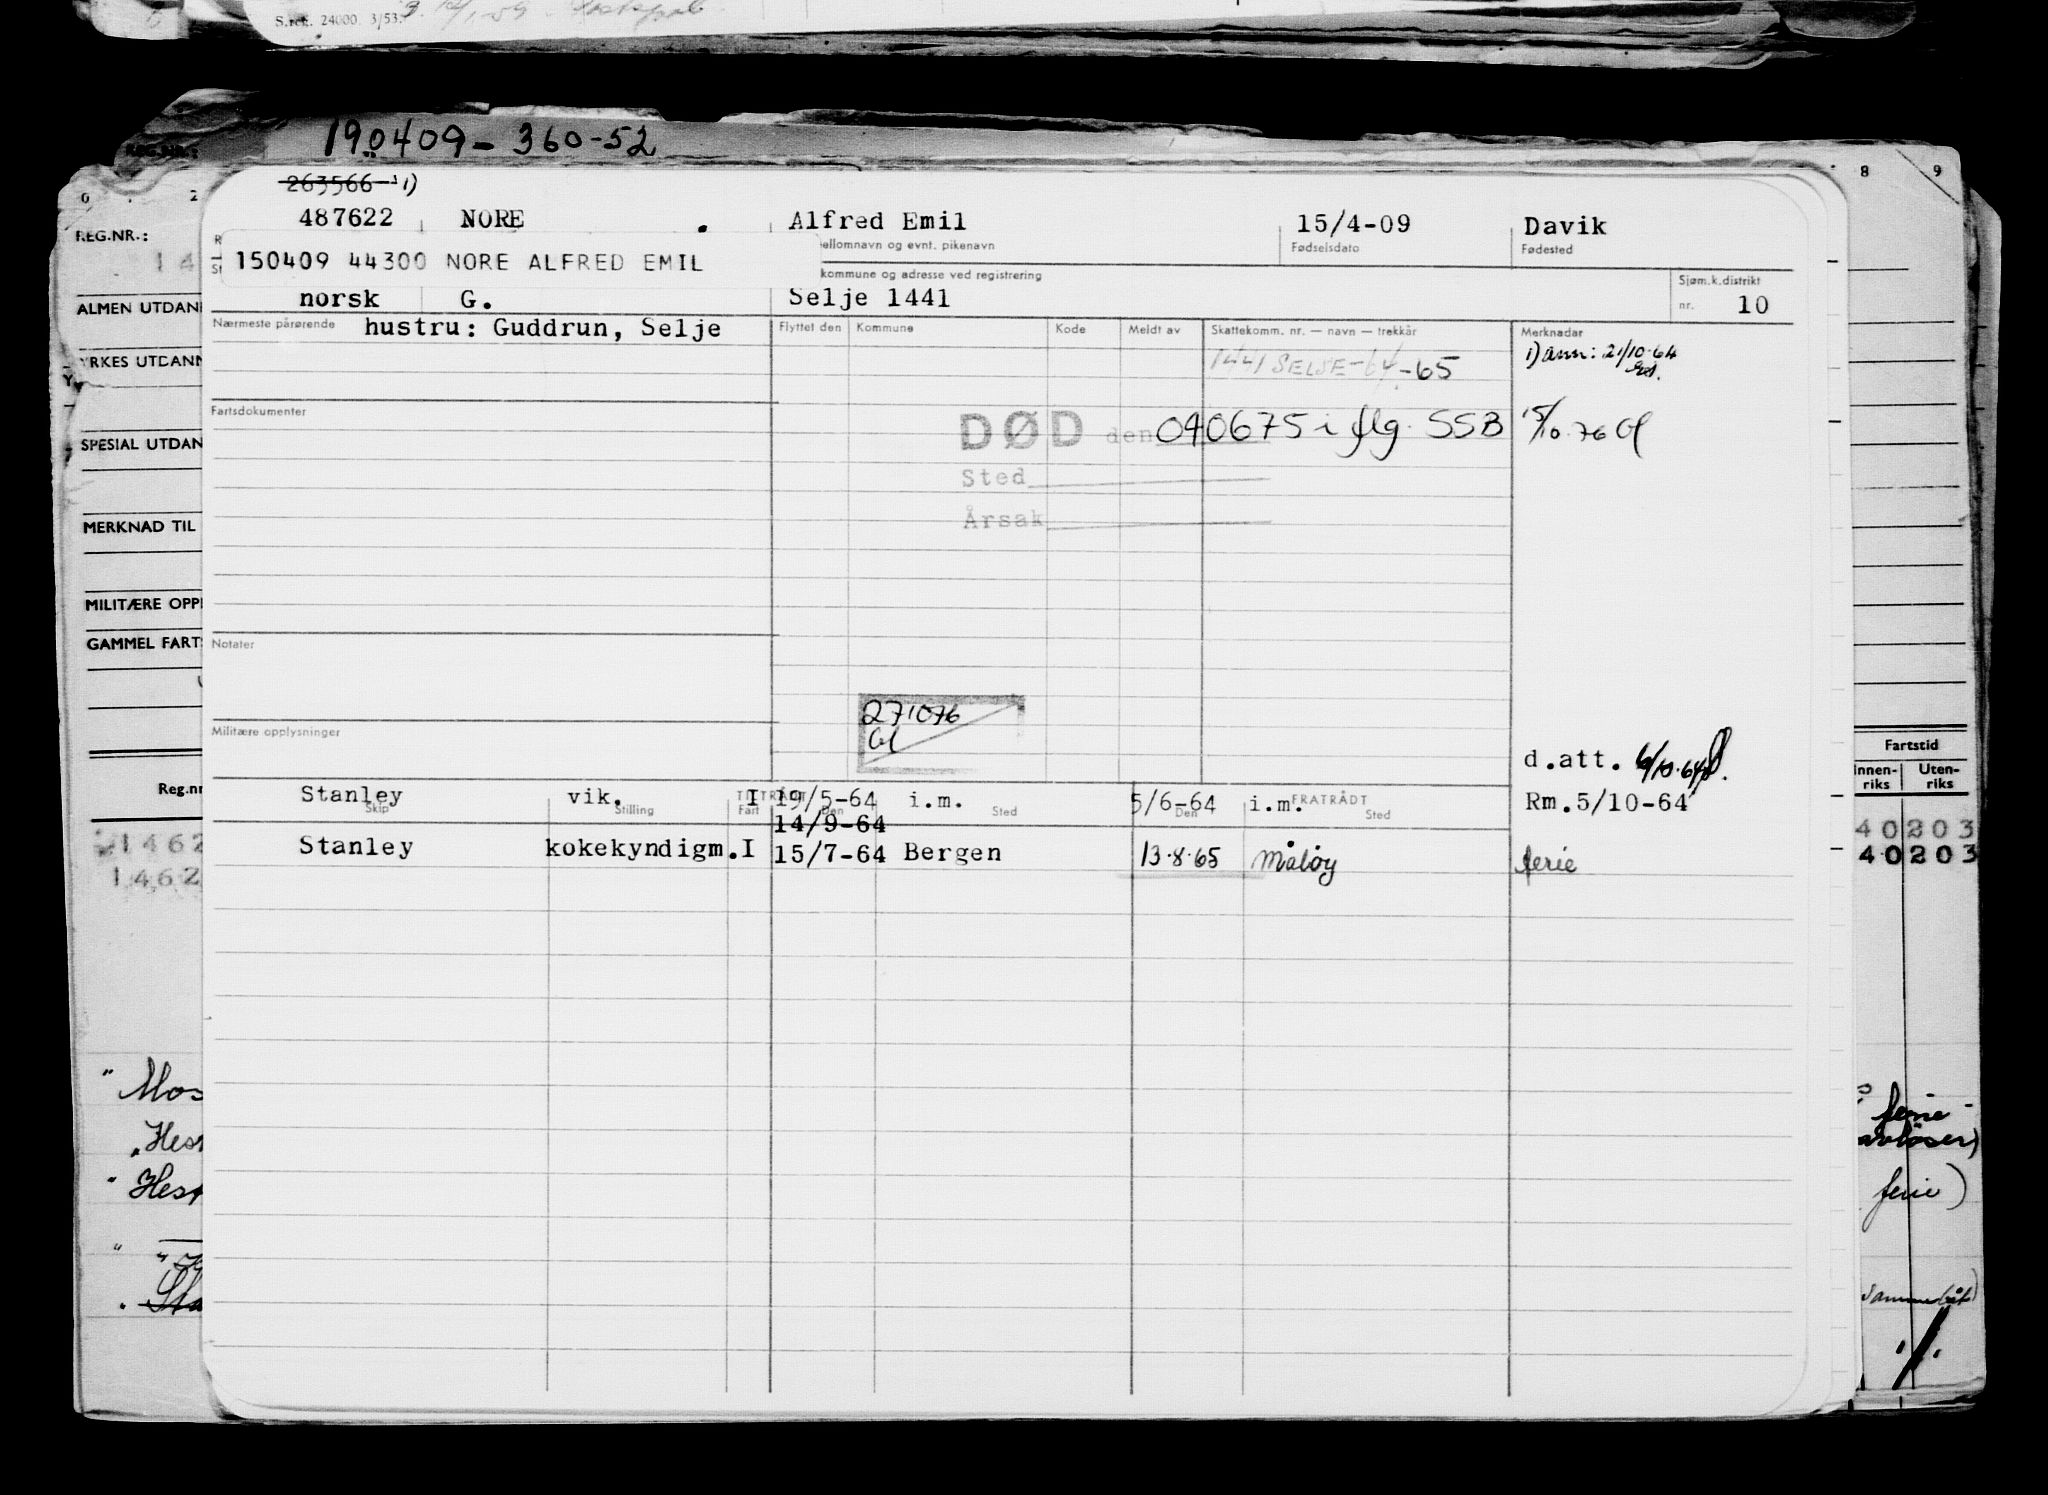 S.rek. 24000. 3/53.
190409-360-52
REG.NR.:
263566 1)
487622 NORE . Alfred Emil 15/4-09 Davik
ellomnavn og evnt. pikenavn Fødselsdato Fødested
150409 44300 NORE ALFRED EMIL
kommune og adresse ved registrering Sjøm.k.distrikt
norsk G. Selje 1441 nr. 10
Nærmeste pårørende hustru: Guddrun, Selje
Flyttet den Kommune Kode Meldt av Skattekomm. nr. — navn — trekkår Merknadar
1441 SELJE-64-65 1) ann: 21/10-64
Fartsdokumenter
DØD den 040675 i flg. SSB 15/10.76 Gl
Sted
Årsak
Notater
271076
Gl
Militære opplysninger
d.att. 6/10-64
Stanley vik. I 19/5-64 i.m. 5/6-64 i.m. Rm.5/10-64
Skip Stilling TILTRÅDT Fart Den Sted Den FRATRÅDT Sted
14/9-64
Stanley kokekyndigm.I 15/7-64 Bergen 13.8.65 Måløy ferie
0 2 8 9
REG.NR.:
14
ALMEN UTDAN
YRKES UTDANN
SPESIAL UTDAN
MERKNAD TIL
MILITÆRE OPP
GAMMEL FARTS
Reg.nr
1462
1462
Fartstid
Innen-riks Uten-riks
40203
40203
" Mos ferie
Hest avløser)
" Hest ferie)
" "
. Sta samme båt)